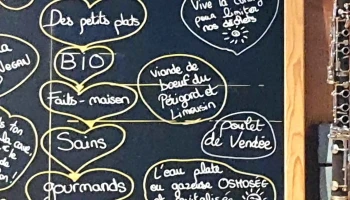 Des petits plats
BIO
Faits-maison
Sains
gourmands
Vive la
pour limiter
nos déchets
viande de
boeuf du
Périgord et
Limousin
poulet
de Vendée
L'eau plate
ou gazeuse OSMOSÉE
VEGAN